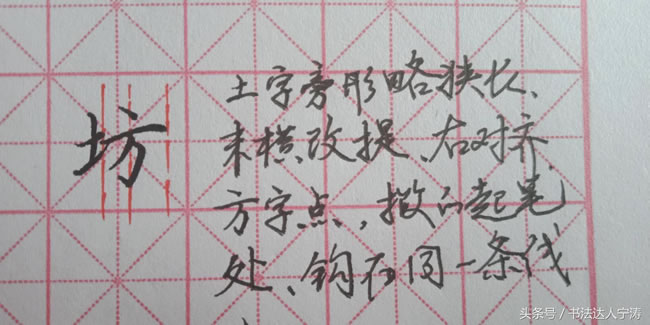 坊
土字旁形略狭长、
末横改提、右对齐、
方字点，撇的起笔
处、钩在同一条线
头条号／书法达人宁涛